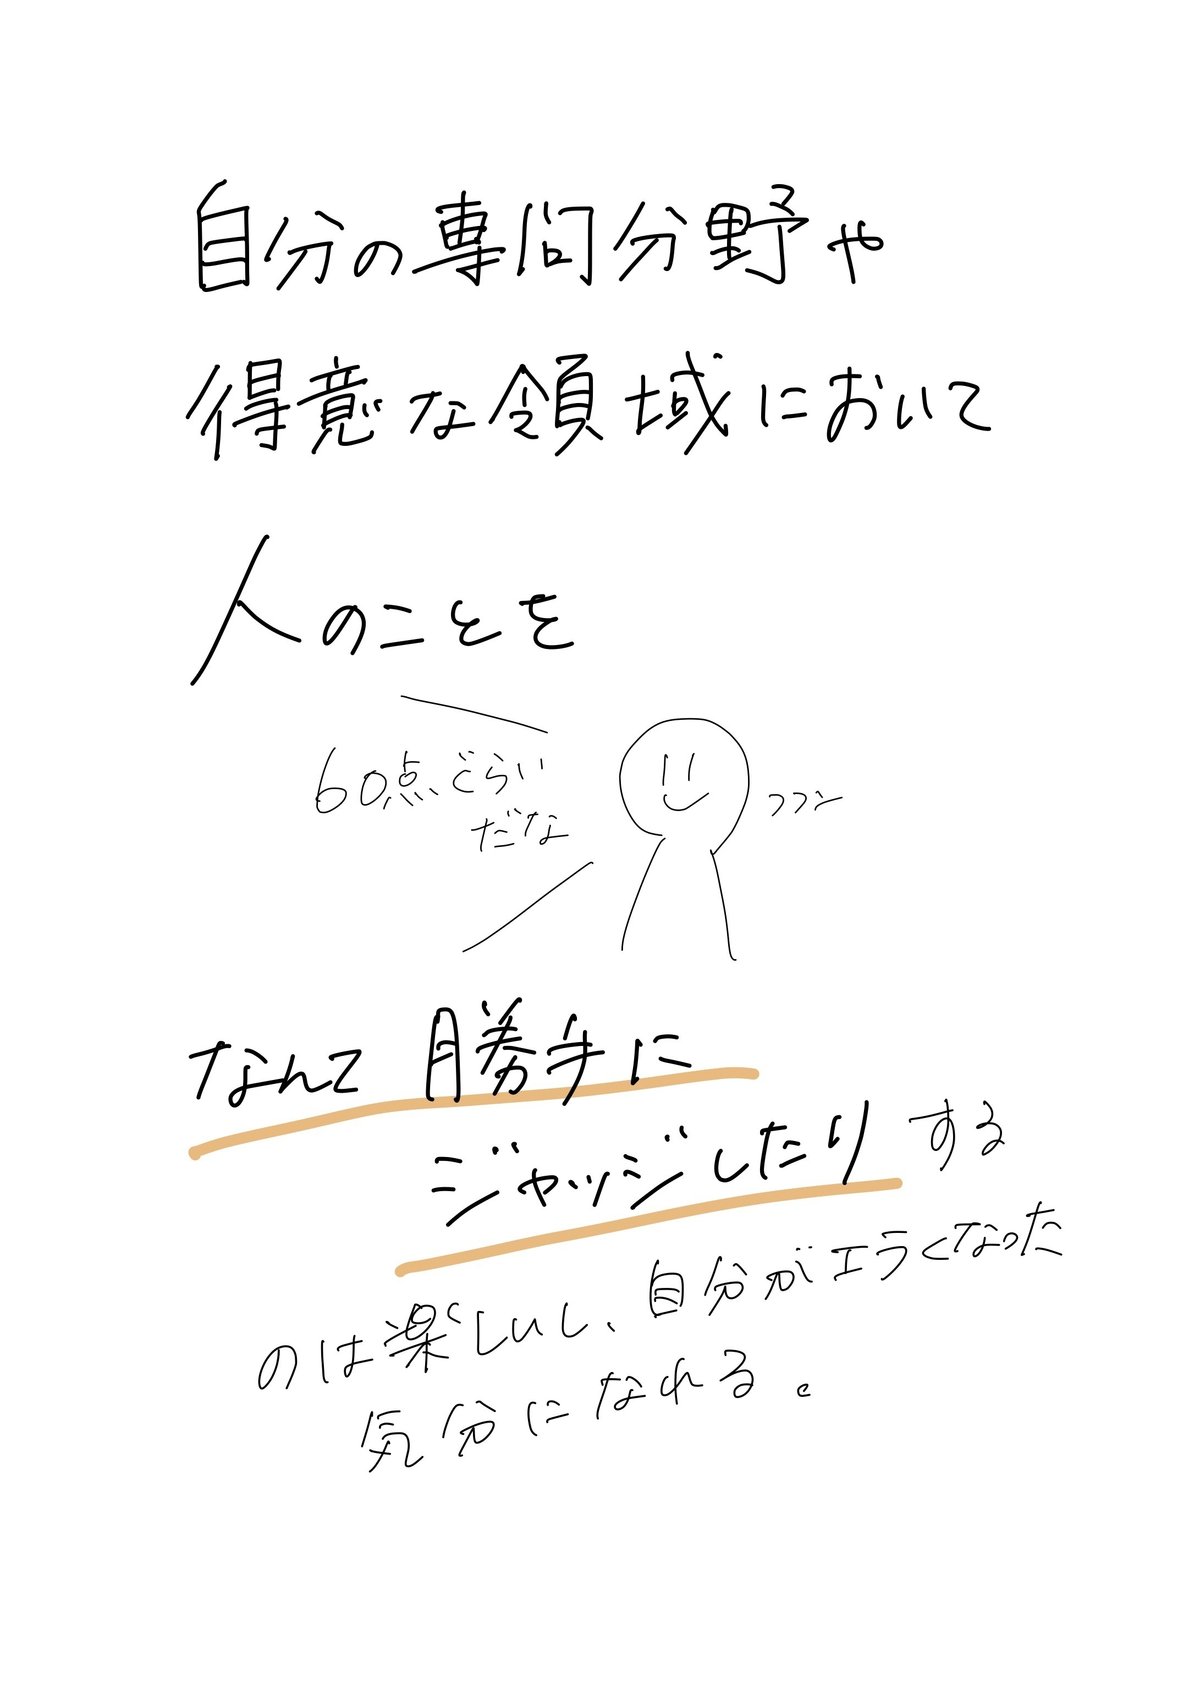 自分の専問分野や
得意な領域において
人のことを
60点ぐらい
だな
フフン
なんて勝手に
ジャッジしたりする
のは楽しいし、自分がエラくなった
気分になれる。